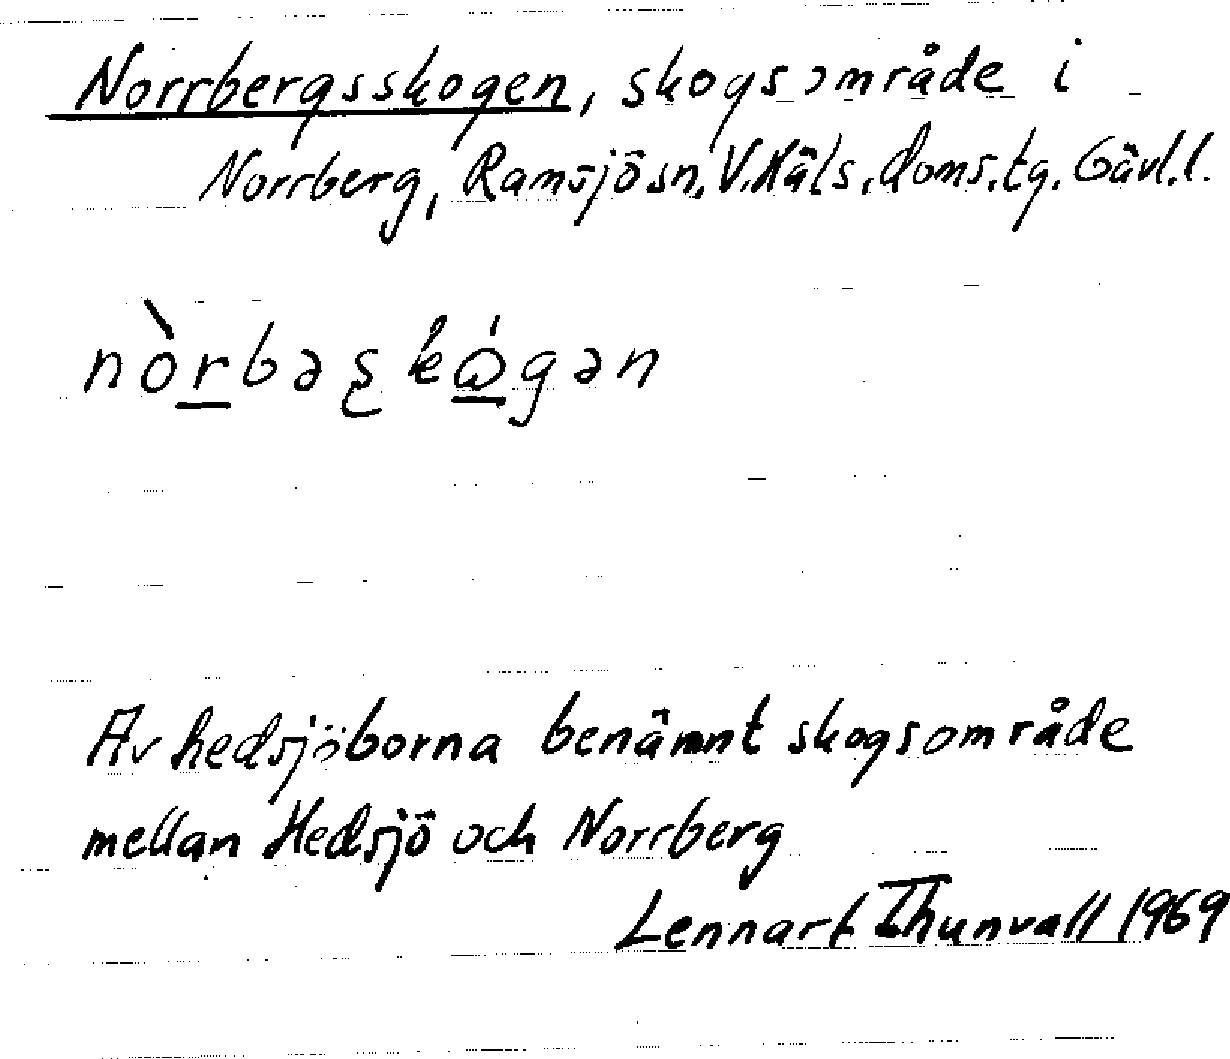 Norrbergsskogen, skogsområde i
Norrberg, Ramsjösn, V.Häls. doms.tg. Gävl.l.
nòrbəʂkǿgən
Av hedsjöborna benämnt skogsområde
mellan Hedsjö och Norrberg
Lennart Thunvall 1969